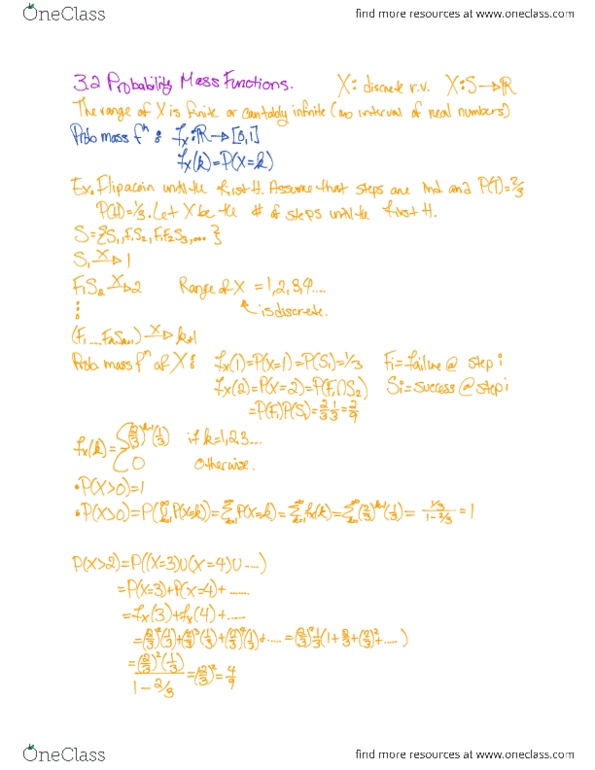 OneClass
find more resources at www.oneclass.com
3.2 Probability Mass Functions. X: discrete r.v. X:S→ℝ
The range of X is finite or cantably infinite (no interval of real numbers)
Prob mass fⁿ : fₓ:ℝ→[0,1]
fₓ(k)=P(X=k)
Ex. Flip a coin until the first H. Assume that steps are ind and P(T)=2/3
P(H)=1/3. Let X be the # of steps until the first H.
S={S₁,F₁S₂,F₁F₂S₃,...}
S₁ X→ 1
F₁S₂ X→ 2 Range of X = 1,2,3,4....
is discrete.
(F₁....FₖSₖ₊₁) X→ k+1
Prob mass fⁿ of X : fₓ(1)=P(X=1)=P(S₁)=1/3 Fi=failure @ step i
fₓ(2)=P(X=2)=P(F₁∩S₂) Si=success @ step i
=P(F₁)P(S₂)=2/3 1/3=2/9
fₓ(k)={(2/3)ᵏ⁻¹(1/3) if k=1,2,3....
0 Otherwise.
•P(X>0)=1
•P(X>0)=P(∪P(X=k))=∑P(X=k)=∑fₓ(k)=∑(2/3)ᵏ⁻¹(1/3)= (1/3)/(1-2/3) =1
P(X>2)=P((X=3)∪(X=4)∪....)
=P(X=3)+P(X=4)+......
=fₓ(3)+fₓ(4)+.....
=(2/3)²(1/3)+(2/3)³(1/3)+(2/3)⁴(1/3)+..... =(2/3)²1/3(1+2/3+(2/3)²+.....)
=(2/3)²(1/3)/(1-2/3) =(2/3)²=4/9
OneClass
find more resources at www.oneclass.com